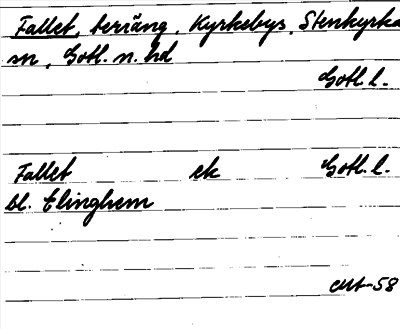 Fallet, terräng, Kyrkebys, Stenkyrka
sn, Gotl. n. hd
Gotl. l.
Fallet ek Gotl. l.
bl. Elinghem
-58